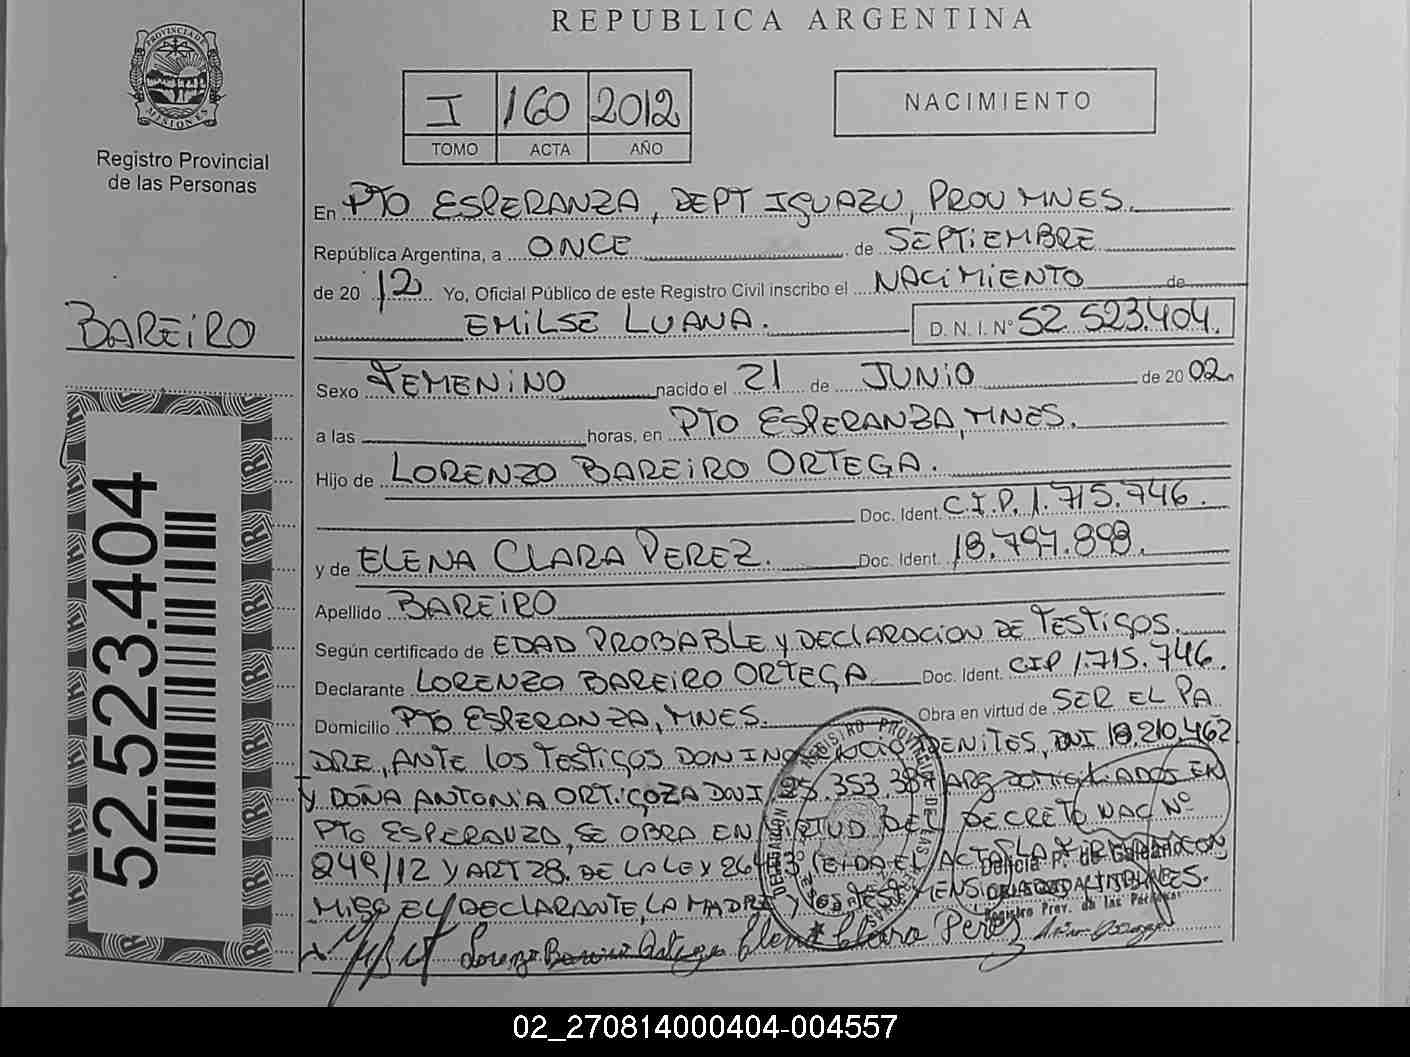 REPUBLICA ARGENTINA
PROVINCIA DE MISIONES
Registro Provincial
de las Personas
I 160 2012
TOMO ACTA AÑO
NACIMIENTO
En PTO ESPERANZA, DEPT IGUAZU, PROV MNES.
República Argentina, a ONCE de SEPTIEMBRE
de 20 12 Yo, Oficial Público de este Registro Civil inscribo el NACIMIENTO de
EMILSE LUANA. D. N. I. N° 52.523.404.
BAREIRO
Sexo FEMENINO nacido el 21 de JUNIO de 20 02
a las horas, en PTO ESPERANZA, MNES.
Hijo de LORENZO BAREIRO ORTEGA.
Doc. Ident. C.I.P. 1.715.746.
y de ELENA CLARA PEREZ. Doc. Ident. 18.797.898.
Apellido BAREIRO
Según certificado de EDAD PROBABLE Y DECLARACION DE TESTIGOS.
Declarante LORENZO BAREIRO ORTEGA Doc. Ident. CIP 1.715.746.
Domicilio PTO ESPERANZA, MNES. Obra en virtud de SER EL PA
DRE, ANTE LOS TESTIGOS DON BENITES, DNI 18.210.462
Y DOÑA ANTONIA ORTIGOZA DNI 25.353.387 ARG DOMICILIADOS EN
PTO ESPERANZA, SE OBRA EN VIRTUD DEL DECRETO NAC Nº
249/12 Y ART 28. DE LA LEY LEIDA EL ACTA LA
EL DECLARANTE, LA MADRE Y LOS
Delicia P. de Galeano
Registro Prov. de las Personas
Lorenzo Bareiro Ortega Elena Clara Perez
52.523.404
02_270814000404-004557